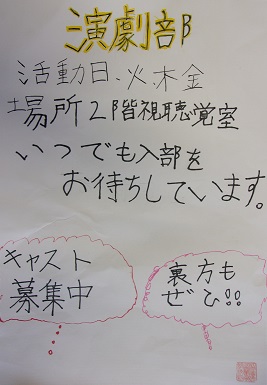 演劇部
活動日、火、木金
場所2階視聴覚室
いつでも入部を
お待ちしています。
キャスト
募集中
裏方も
ぜひ!!